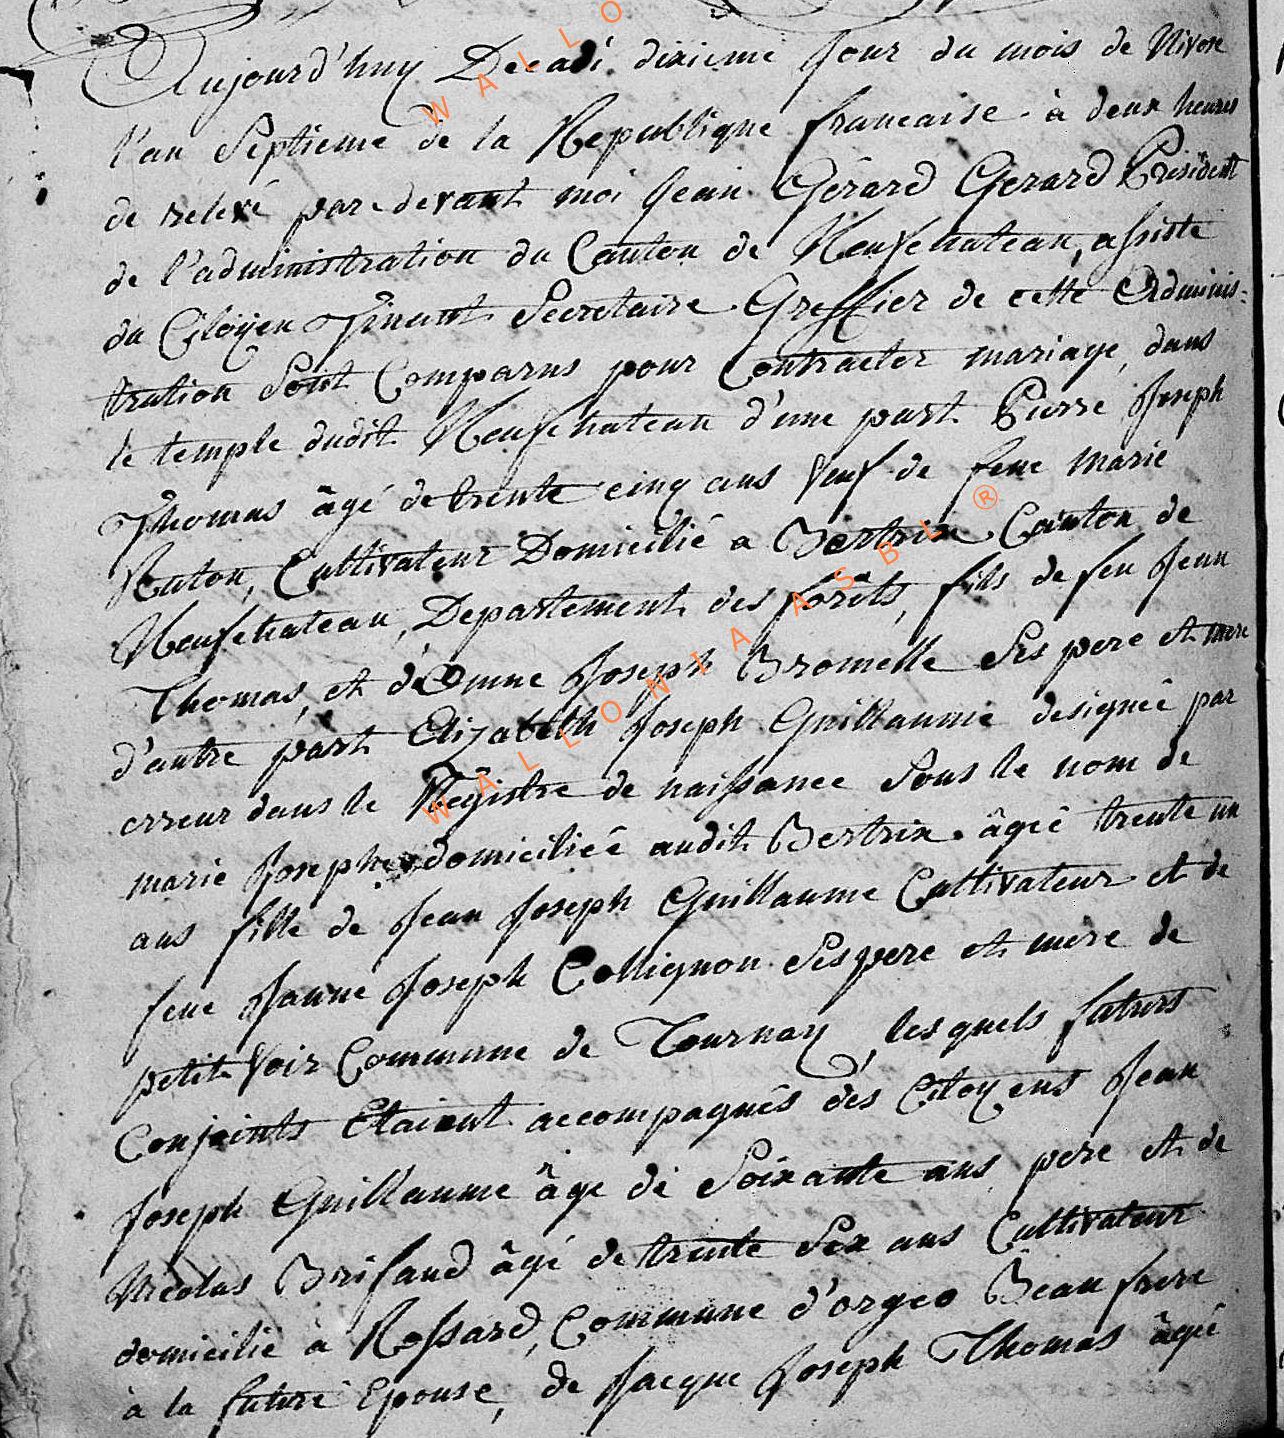 Aujourd'huy Decadi dixieme jour du mois de Nivose
l'an Septieme de la Republique francaise à deux heures
de relevé par devant moi Jean Gérard Gerard Président
de l'administration du Canton de Neufchateau, assisté
du Citoyen Tinant Secretaire Greffier de cette Adminis-
tration Sont Comparus pour Contracter mariage, dans
le temple dudit Neufchateau d'une part Pierre Joseph
Thomas âgé de trente cinq ans Veuf de feue Marie
Cultivateur Domicilié a Bertrix Canton de
Neufchateau, Departement des forêts, fils de feu Jean
Thomas, et d'Anne Joseph Bromelle Ses pere et mere
d'autre part Elizabeth Joseph Guillaume designée par
erreur dans le Régistre de naissance Sous le nom de
marie Josephe domiciliée audit Bertrix âgée trente un
ans fille de Jean Joseph Guillaume Cultivateur et de
feue Janne Joseph Collignon Ses pere et mere de
petit Voir Commune de Tournay, lesquels futurs
Conjoints Etaient accompagnés des Citoyens Jean
Joseph Guillaume âge de Soixante ans pere et de
Nicolas Brifaud âgé de trente Six ans Cultivateur
domicilié à Rossard, Commune d'orgeo Beau frere
à la future Epouse, de Jacque Joseph Thomas âgé
WALLO
WALLONIA ASBL ®